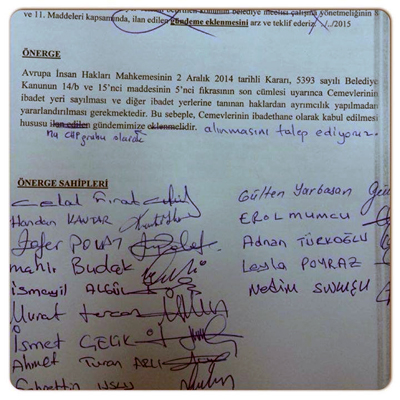 ve 11. Maddeleri kapsamında, ilan edilen gündeme eklenmesini arz ve teklif ederiz. /../2015
ÖNERGE
Avrupa İnsan Hakları Mahkemesinin 2 Aralık 2014 tarihli Kararı, 5393 sayılı Belediye
Kanunun 14/b ve 15'nci maddesinin 5'nci fıkrasının son cümlesi uyarınca Cemevlerinin
ibadet yeri sayılması ve diğer ibadet yerlerine tanınan haklardan ayrımcılık yapılmadan
yararlandırılması gerekmektedir. Bu sebeple, Cemevlerinin ibadethane olarak kabul edilmesi
hususu ilan edilen gündemimize eklenmelidir. alınmasını talep ediyoruz.
CHP grubu olarak
ÖNERGE SAHİPLERİ
Celal Fırat
Gülten Yarbasan
Handan KANTAR
EROL MUMCU
Zafer POLAT
Adnan TÜRKOĞLU
Budak
Leyla POYRAZ
İsmayil ALGÜL
Nedim
Murat Tercan
İsmet ÇELİK
Ahmet Turan